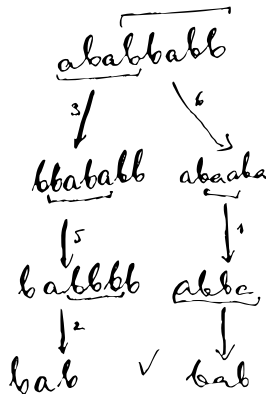 ababbabb
3 6
bbababb abaaba
5 1
babbbb abba
2
bab ✓ bab